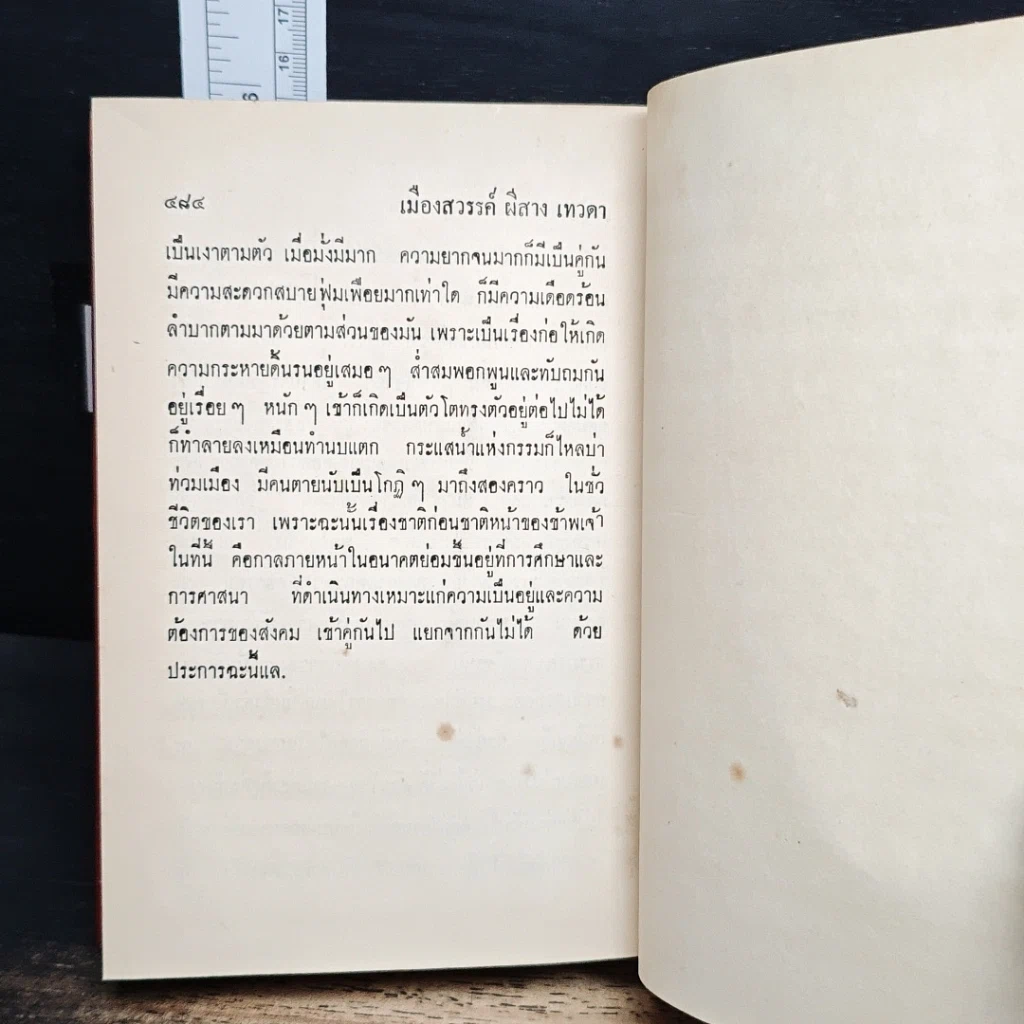 17
16
6
๔๘๔ เมืองสวรรค์ ผีสาง เทวดา
เป็นเงาตามตัว เมื่อมั่งมีมาก ความยากจนมากก็มีเป็นคู่กัน
มีความสะดวกสบายฟุ่มเฟือยมากเท่าใด ก็มีความเดือดร้อน
ลำบากตามมาด้วยตามส่วนของมัน เพราะเป็นเรื่องก่อให้เกิด
ความกระหายดิ้นรนอยู่เสมอ ๆ ส่ำสมพอกพูนและทับถมกัน
อยู่เรื่อย ๆ หนัก ๆ เข้าก็เกิดเป็นตัวโตทรงตัวอยู่ต่อไปไม่ได้
ก็ทำลายลงเหมือนทำนบแตก กระแสน้ำแห่งกรรมก็ไหลบ่า
ท่วมเมือง มีคนตายนับเป็นโกฏิ ๆ มาถึงสองคราว ในชั่ว
ชีวิตของเรา เพราะฉะนั้นเรื่องชาติก่อนชาติหน้าของข้าพเจ้า
ในที่นี้ คือกาลภายหน้าในอนาคตย่อมขึ้นอยู่ที่การศึกษาและ
การศาสนา ที่ดำเนินทางเหมาะแก่ความเป็นอยู่และความ
ต้องการของสังคม เข้าคู่กันไป แยกจากกันไม่ได้ ด้วย
ประการฉะนี้แล.